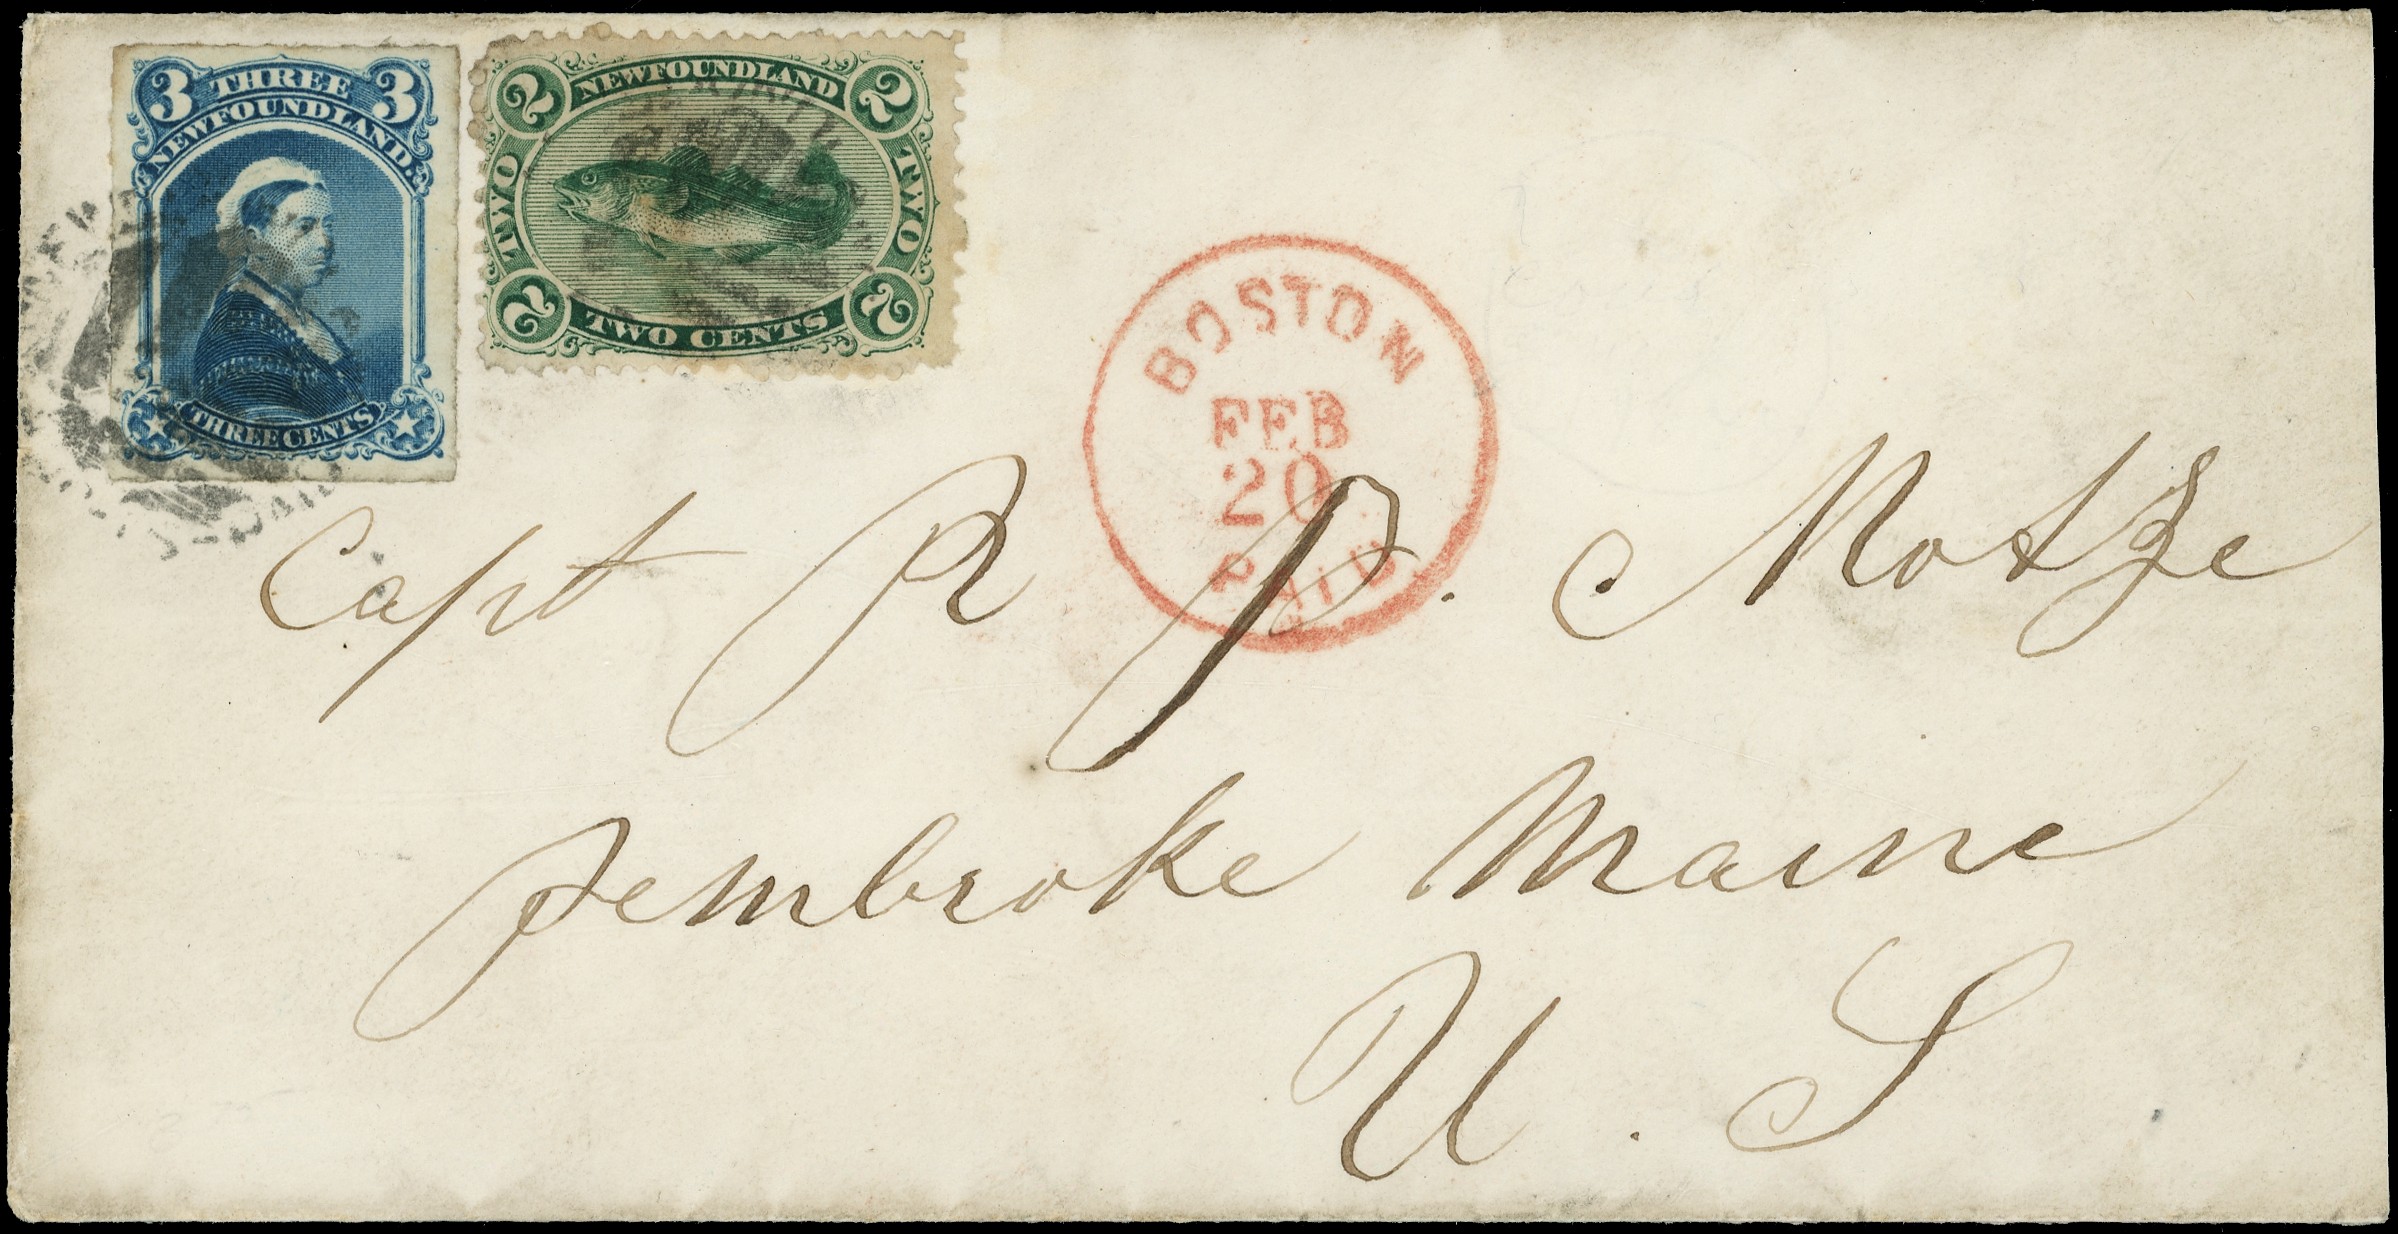 3 THREE 3
NEWFOUNDLAND.
THREE CENTS
2 NEWFOUNDLAND 2
TWO TWO
2 TWO CENTS 2
BOSTON
FEB
20
PAID
Capt R P. Motze
Pembroke Maine
U. S